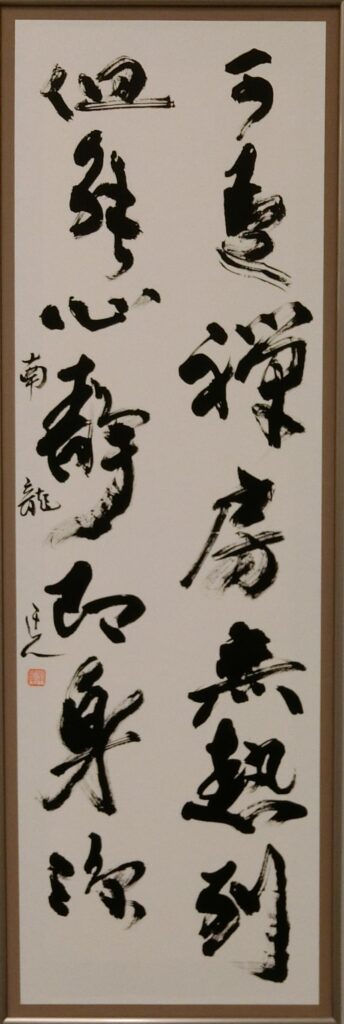 可是禅房無熱到
但能心静即身涼
南龍